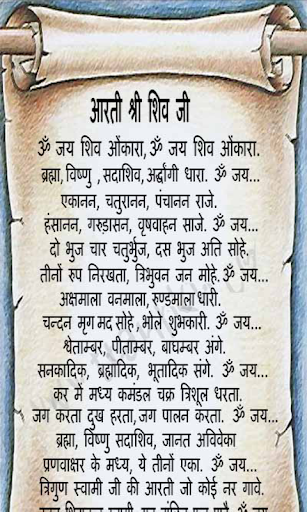 आरती श्री शिव जी
ॐ जय शिव ओंकारा,ॐ जय शिव ओंकारा.
ब्रह्मा,विष्णु ,सदाशिव,अर्द्धांगी धारा. ॐ जय...
एकानन, चतुरानन, पंचानन राजे.
हंसानन, गरुडासन, वृषवाहन साजे. ॐ जय...
दो भुज चार चतुर्भुज, दस भुज अति सोहे.
तीनों रुप निरखता, त्रिभुवन जन मोहे.ॐ जय...
अक्षमाला वनमाला,रुण्डमाला धारी.
चन्दन मृग मद सोहे,भोले शुभकारी. ॐ जय...
श्वेताम्बर, पीताम्बर, बाघम्बर अंगे.
सनकादिक, ब्रह्मादिक, भूतादिक संगे. ॐ जय...
कर में मध्य कमंडल चक्र त्रिशूल धरता.
जग करता दुख हरता,जग पालन करता. ॐ जय...
ब्रह्मा, विष्णु सदाशिव, जानत अविवेका
प्रणवाक्षर के मध्य, ये तीनों एका. ॐ जय...
त्रिगुण स्वामी जी की आरती जो कोई नर गावे.